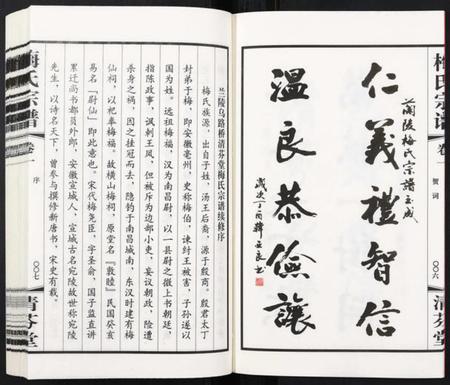 梅氏宗谱
卷一
贺词
〇〇六
清芬堂
蘭陵梅氏宗譜玉成
仁義禮智信
溫良恭儉讓
歲次丁酉
兰陵乌路桥清芬堂梅氏宗谱续修序
梅氏族源，出自子姓，汤王后裔，源于殷商。殷君太丁
封弟于梅，即安徽亳州，史称梅伯，谏纣王被害，子孙遂以
国为姓。远祖梅福，汉为南昌尉，以一县尉之微上书朝廷，
指陈政事，讽刺王凤，但被斥为边部小吏，妄议朝政，险遭
杀身之祸，因之挂冠而去，隐钓于南昌城南，东汉时建有梅
仙祠，以祀奉梅福。故横山梅祠，原堂名『敦睦』民国癸亥
易名『尉仙』即此意也。宋代梅尧臣，字圣俞，国子监直讲
累迁尚书都官员外郎，安徽宣城人，宣城古名宛陵故世称宛陵
先生，以诗名天下，曾参与撰修新唐书，宋史有载。
梅氏宗谱
卷一
序
〇〇七
清芬堂